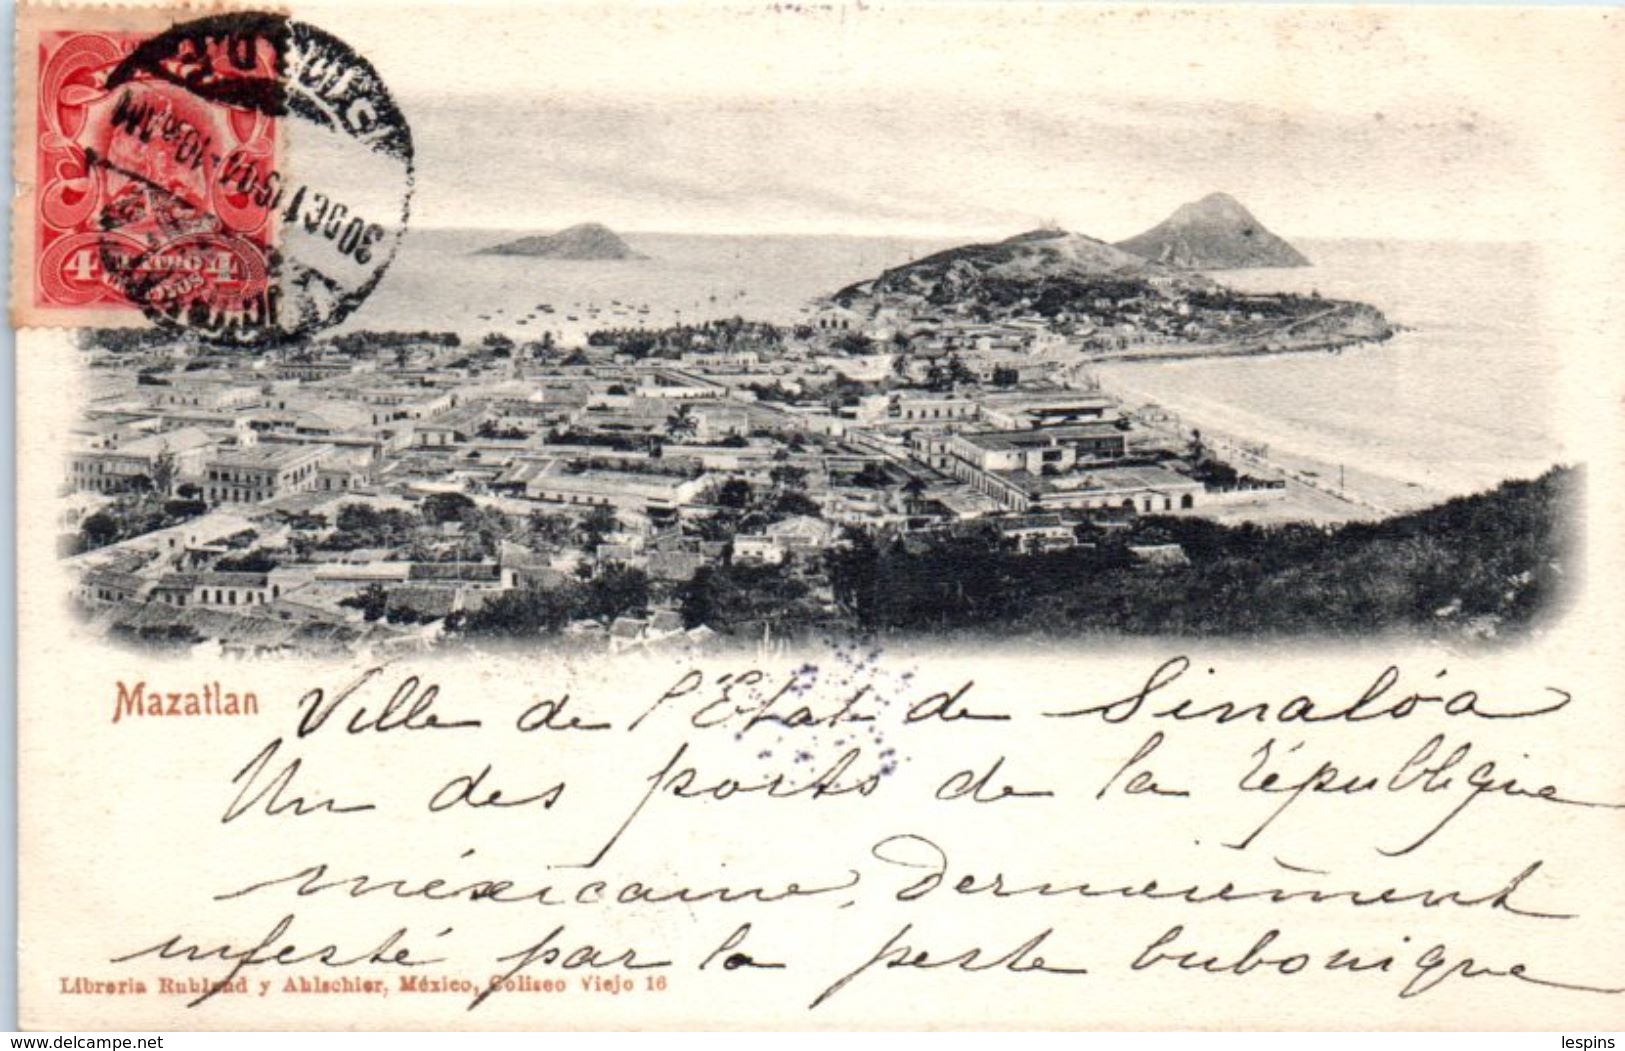 4 CUATRO 4
CENTAVOS
30 DC 1904 -10
Mazatlan
Ville de l'État de Sinalóa
Un des ports de la République
méxicaine, Dernièrement
infesté par la peste bubonique
Libreria Ruhland y Ahlschier, México, Coliseo Viejo 16
www.delcampe.net
lespins